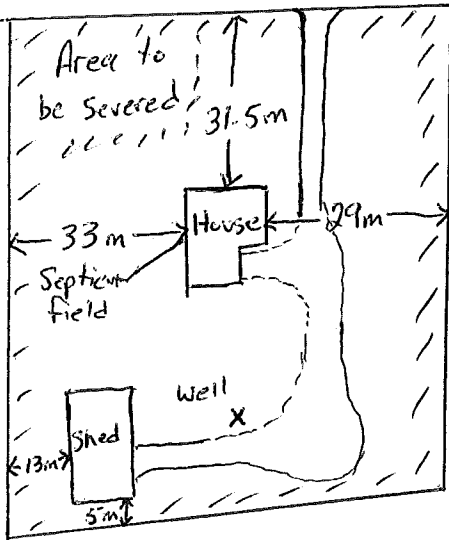 Area to
be severed
31.5m
House
29m
33m
Septic
field
well
X
Shed
13m
5m